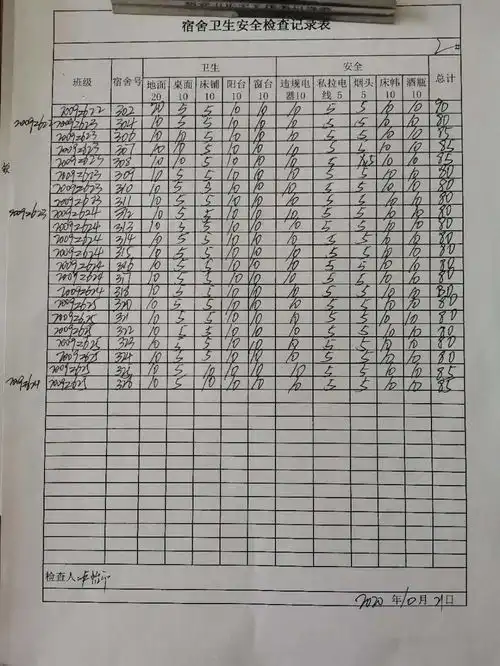 宿舍卫生安全检查记录表
班级 宿舍号 卫生 安全 总计
地面20 桌面10 床铺10 阳台10 窗台10 违规电器10 私拉电线 5 烟头 5 床帏10 酒瓶10
2009z622 302 20 5 5 10 10 10 5 5 10 10 90
2009z622 2009z623 304 10 5 5 10 10 10 5 5 10 10 80
2009z623 306 10 10 5 10 10 10 5 5 10 10 85
2009z623 307 10 10 5 10 10 10 5 5 10 10 85
2009z623 308 10 10 5 10 10 10 5 10 10 85
2009z623 309 10 5 5 10 10 10 5 5 10 10 80
2009z623 310 10 5 5 10 10 10 5 5 10 10 80
2009z623 311 10 5 5 10 10 10 5 5 10 10 80
2009z623 2009z624 312 10 5 5 10 10 10 5 5 10 10 80
2009z624 313 10 5 5 10 10 10 5 5 10 10 80
2009z624 314 10 5 5 10 10 10 5 5 10 10 80
2009z624 315 10 5 5 10 10 10 5 5 10 10 80
2009z624 316 10 5 5 10 10 10 5 5 10 10 80
2009z624 317 10 5 5 10 10 10 5 5 10 10 80
2009z624 318 10 5 5 10 10 10 5 5 10 10 80
2009z625 320 10 5 5 10 10 10 5 5 10 10 80
2009z625 321 10 5 5 10 10 10 5 5 10 10 80
2009z625 322 10 5 5 10 10 10 5 5 10 10 80
2009z625 323 10 5 5 10 10 10 5 5 10 10 80
2009z625 324 10 5 5 10 10 10 5 5 10 10 80
2009z625 325 10 5 10 10 10 10 5 5 10 10 85
2009z625 326 10 5 10 10 10 10 5 5 10 10 85
检查人
2020 年 10 月 21 日